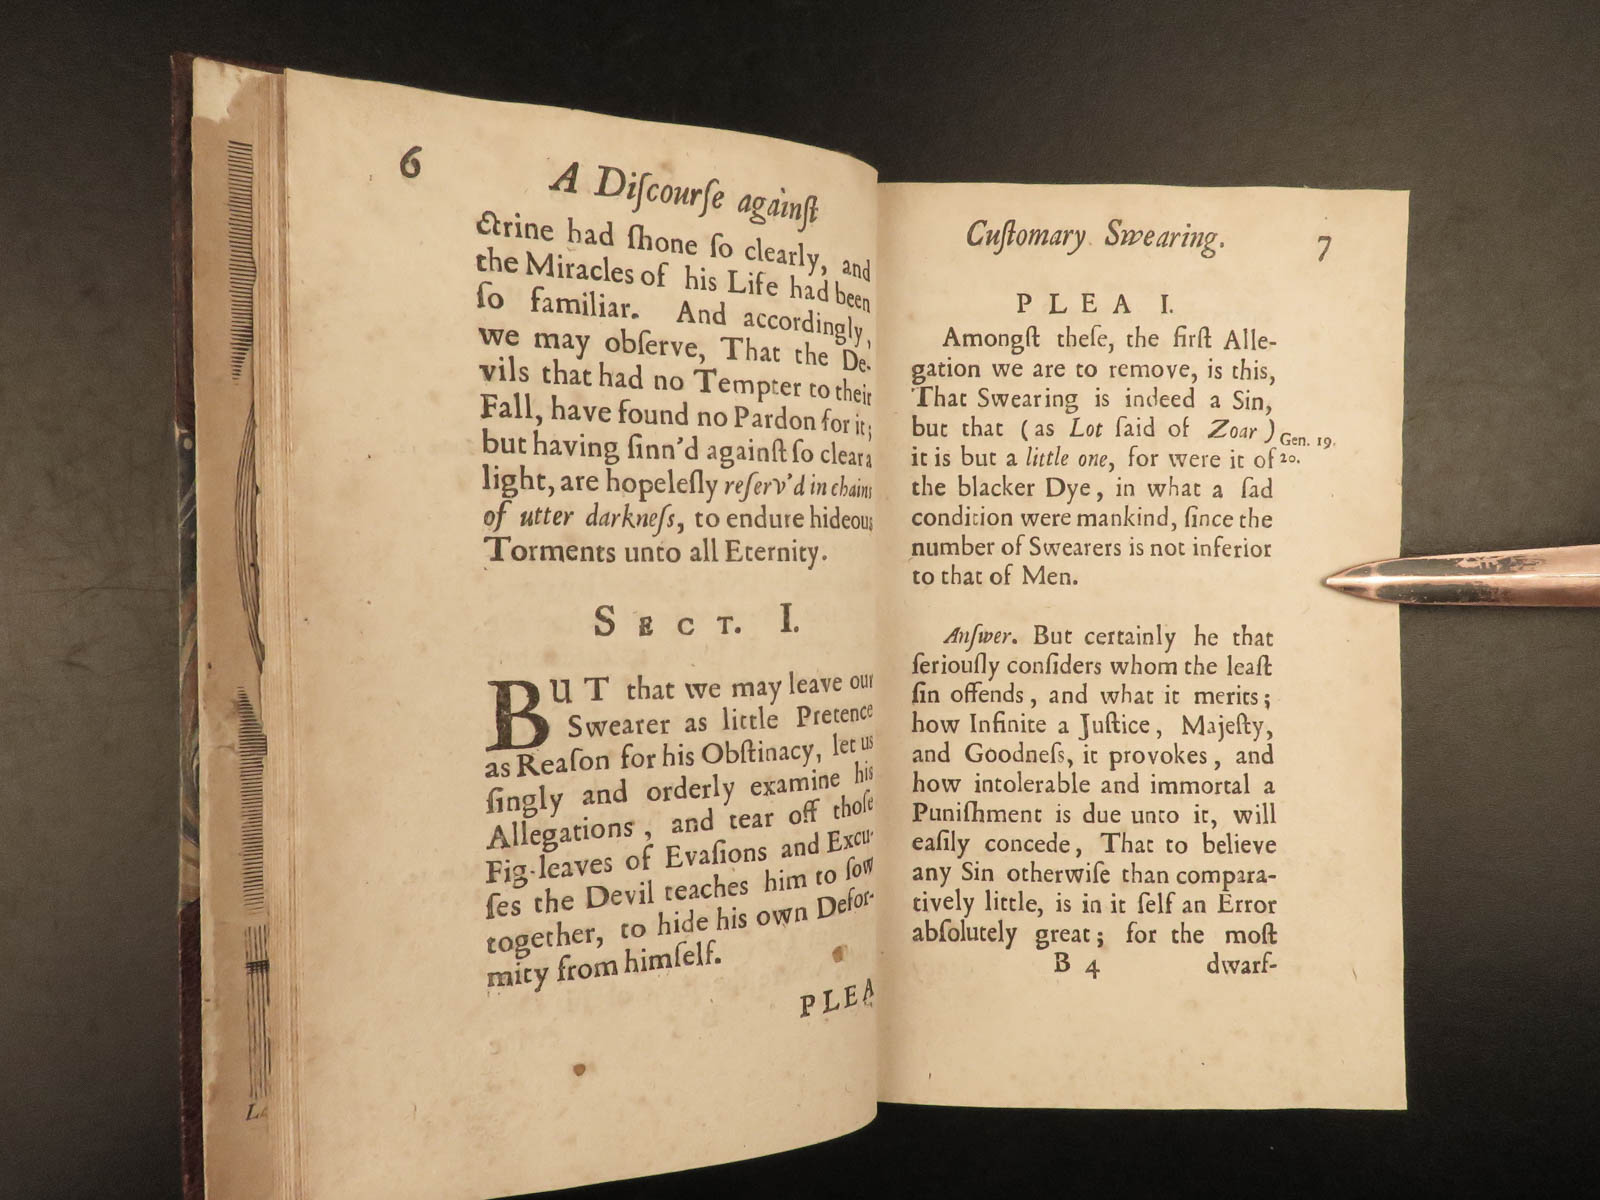 6
A Diſcourſe againſt
ctrine had ſhone ſo clearly, and
the Miracles of his Life had been
ſo familiar. And accordingly,
we may obſerve, That the De-
vils that had no Tempter to their
Fall, have found no Pardon for it;
but having ſinn'd againſt ſo clear a
light, are hopeleſly reſerv'd in chains
of utter darkneſs, to endure hideous
Torments unto all Eternity.
SECT. I.
BUT that we may leave our
Swearer as little Pretence
as Reaſon for his Obſtinacy, let us
ſingly and orderly examine his
Allegations, and tear off thoſe
Fig-leaves of Evaſions and Excu-
ſes the Devil teaches him to ſow
together, to hide his own Defor-
mity from himſelf.
PLEA
Cuſtomary Swearing.
7
PLEA I.
Amongſt theſe, the firſt Alle-
gation we are to remove, is this,
That Swearing is indeed a Sin,
but that (as Lot ſaid of Zoar)
it is but a little one, for were it of
the blacker Dye, in what a ſad
condition were mankind, ſince the
number of Swearers is not inferior
to that of Men.
Gen. 19.
20.
Anſwer. But certainly he that
ſeriouſly conſiders whom the leaſt
ſin offends, and what it merits;
how Infinite a Juſtice, Majeſty,
and Goodneſs, it provokes, and
how intolerable and immortal a
Puniſhment is due unto it, will
eaſily concede, That to believe
any Sin otherwiſe than compara-
tively little, is in it ſelf an Error
abſolutely great; for the moſt
B 4
dwarf-